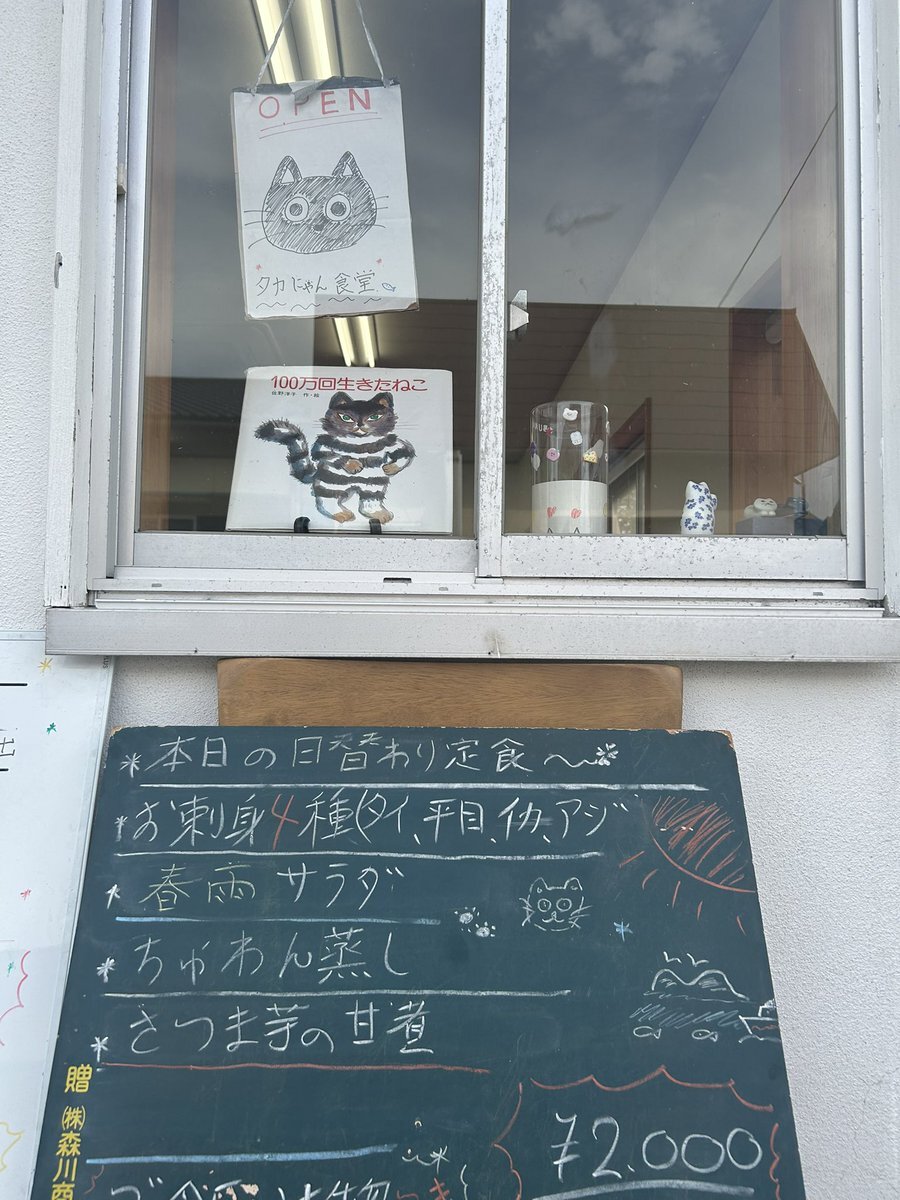 OPEN
タカにゃん食堂
100万回生きたねこ
佐野洋子 作・絵
本日の日替わり定食
お刺身4種(タイ、平目、イカ、アジ
春雨サラダ
ちゅわん蒸し
さつま芋の甘煮
¥2.000
贈
㈱森川商